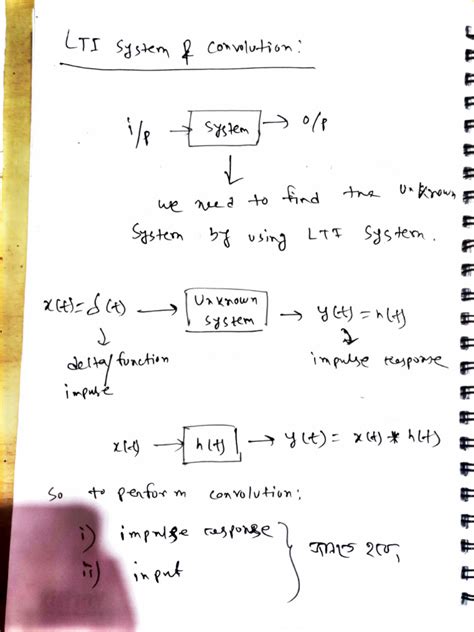 LTI system & convolution:
i/p → system → o/p
we need to find the unknown
system by using LTI system.
x(t)=δ(t) → Unknown system → y(t)=h(t)
delta/function impulse
impulse response
x(t) → h(t) → y(t) = x(t) * h(t)
So to perform convolution:
i) impulse response
ii) input
জানতে হবে,